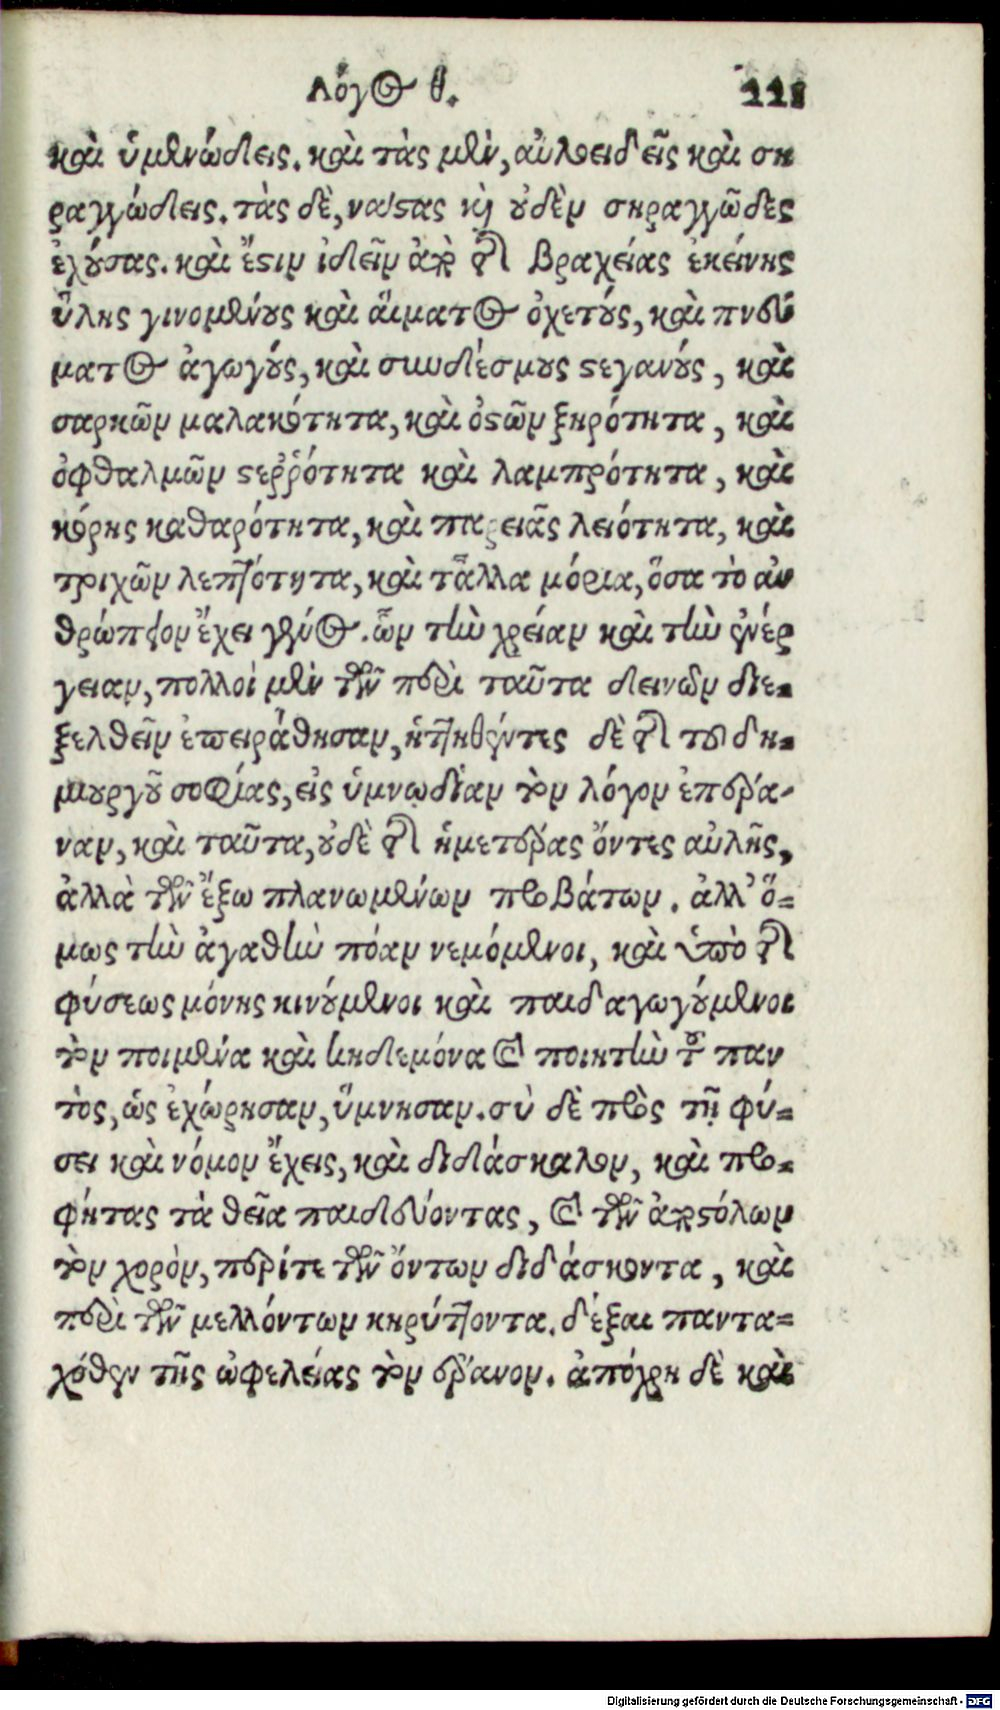 Λόγος θ. 118
καὶ ὑμενώδεις. καὶ τὰς μὲν, αὐλοειδεῖς καὶ ση
ραγγώδεις. τὰς δὲ, ναστὰς καὶ οὐδὲν σηραγγῶδες
ἐχούσας. καὶ ἔστιν ἰδεῖν ἀπὸ τῆς βραχείας ἐκείνης
ὕλης γινομένους καὶ αἵματος ὀχετούς, καὶ πνεύ
ματος ἀγωγούς, καὶ συνδέσμους στεγανούς, καὶ
σαρκῶν μαλακότητα, καὶ ὀστῶν ξηρότητα, καὶ
ὀφθαλμῶν στεῤῥότητα καὶ λαμπρότητα, καὶ
κόρης καθαρότητα, καὶ παρειᾶς λειότητα, καὶ
τριχῶν λεπτότητα, καὶ τἆλλα μόρια, ὅσα τὸ ἀν
θρώπειον ἔχει γένος. ὧν τὴν χρείαν καὶ τὴν ἐνέρ
γειαν, πολλοὶ μὲν τῶν περὶ ταῦτα δεινῶν διε-
ξελθεῖν ἐπειράθησαν, ἡττηθέντες δὲ τῆς τοῦ δη-
μιουργοῦ σοφίας, εἰς ὑμνῳδίαν τὸν λόγον ἐπέρα-
ναν, καὶ ταῦτα, οὐδὲ τῆς ἡμετέρας ὄντες αὐλῆς,
ἀλλὰ τῶν ἔξω πλανωμένων προβάτων. ἀλλ' ὅ-
μως τὴν ἀγαθὴν πόαν νεμόμενοι, καὶ ὑπὸ τῆς
φύσεως μόνης κινούμενοι καὶ παιδαγωγούμενοι
τὸν ποιμένα καὶ κηδεμόνα καὶ ποιητὴν τοῦ παν
τὸς, ὡς ἐχώρησαν, ὕμνησαν. σὺ δὲ πρὸς τῇ φύ-
σει καὶ νόμον ἔχεις, καὶ διδάσκαλον, καὶ προ-
φήτας τὰ θεῖα παιδεύοντας, καὶ τῶν ἀποστόλων
τὸν χορὸν, περί τε τῶν ὄντων διδάσκοντα, καὶ
περὶ τῶν μελλόντων κηρύττοντα. δέξαι παντα-
χόθεν τῆς ὠφελείας τὸν ἔρανον. ἀπόχρη δὲ καὶ
Digitalisierung gefördert durch die Deutsche Forschungsgemeinschaft - DFG